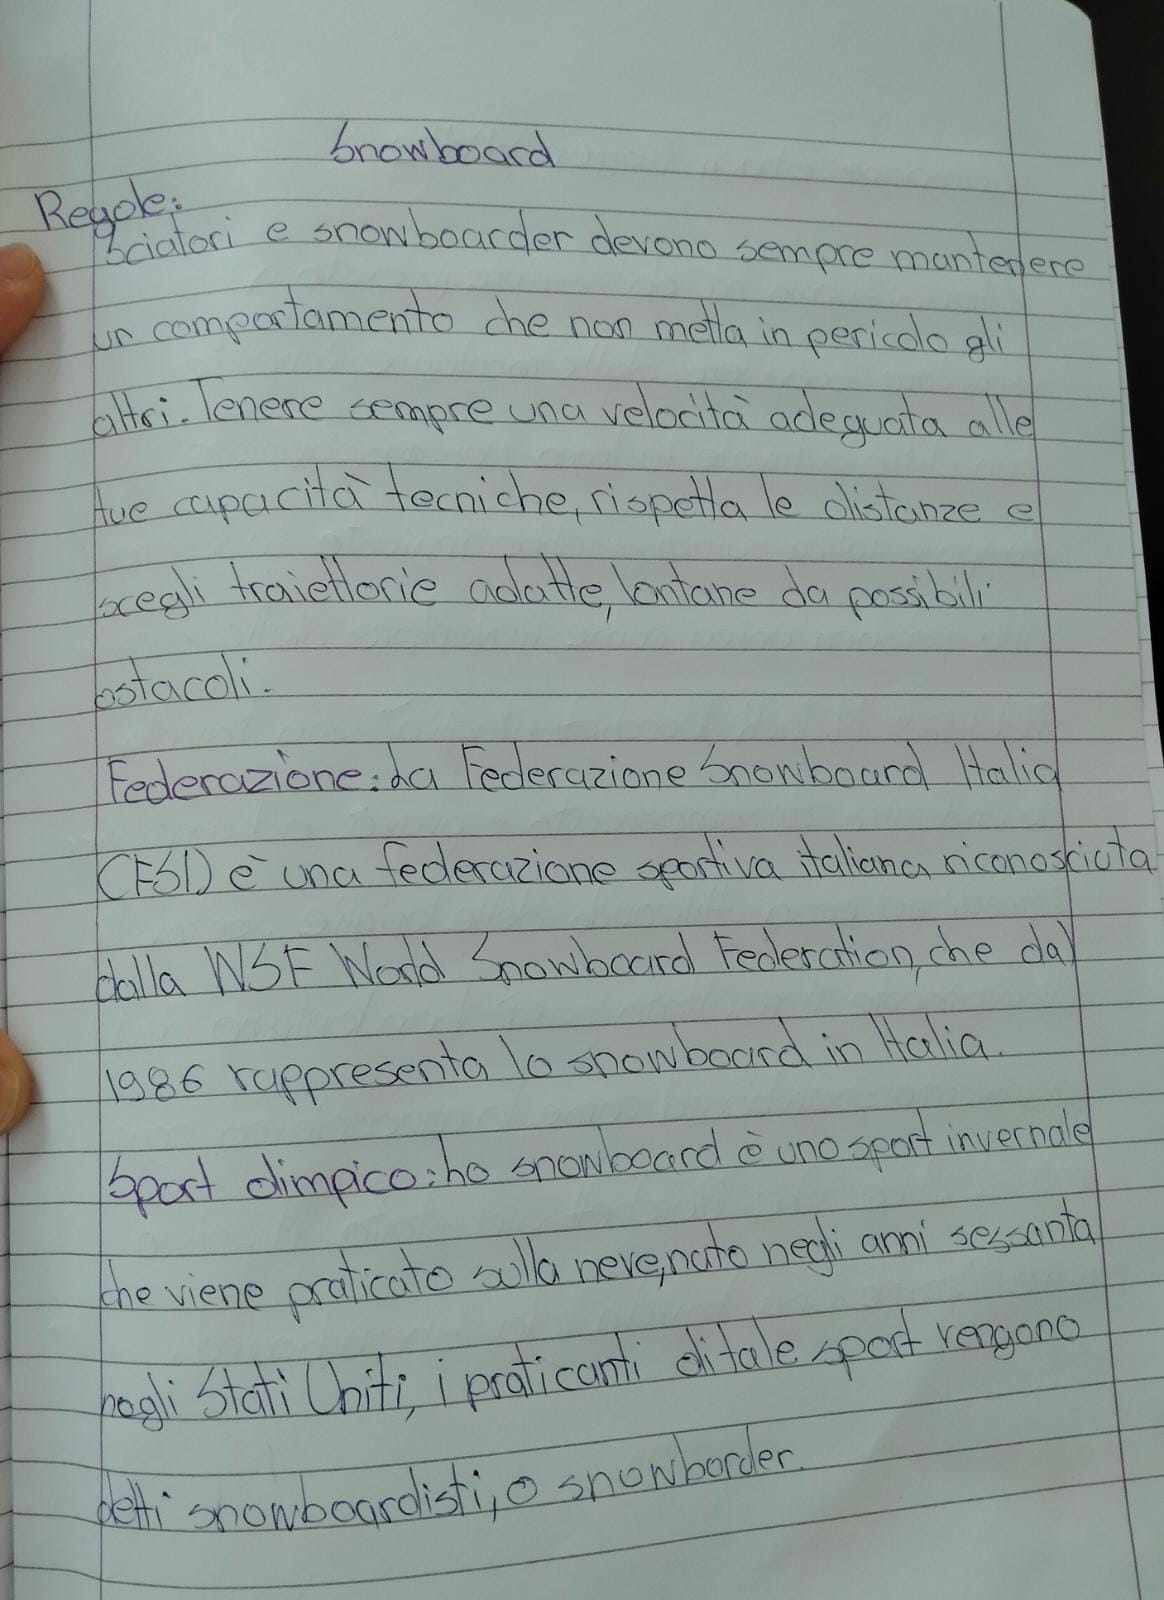 Snowboard
Regole:
Sciatori e snowboarder devono sempre mantenere
un comportamento che non metta in pericolo gli
altri. Tenere sempre una velocità adeguata alle
tue capacità tecniche, rispetta le distanze e
scegli traiettorie adatte, lontane da possibili
ostacoli.
Federazione: La Federazione Snowboard Italia
(FSI) è una federazione sportiva italiana riconosciuta
dalla WSF World Snowboard Federation, che dal
1986 rappresenta lo snowboard in Italia.
Sport olimpico: Lo snowboard è uno sport invernale
che viene praticato sulla neve, nato negli anni sessanta
negli Stati Uniti, i praticanti di tale sport vengono
detti snowboardisti, o snowborder.